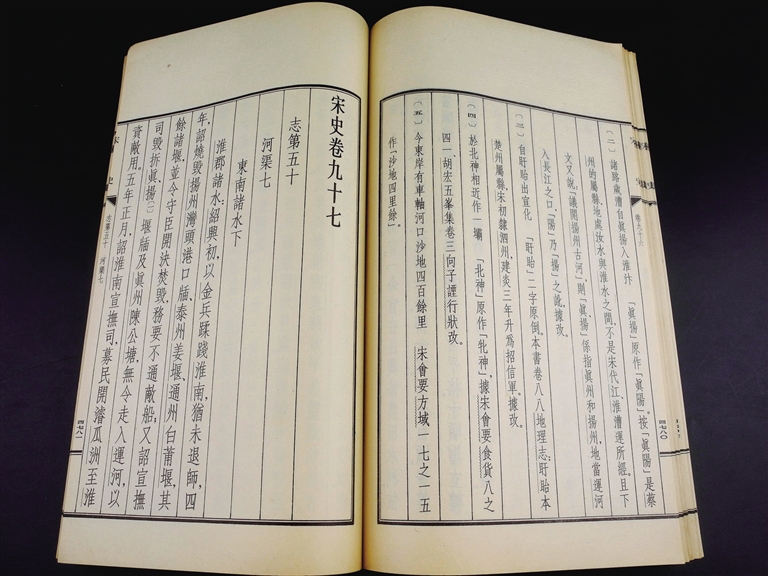 〔二〕諸路歲漕自眞揚入淮汴　「眞揚」原作「眞陽」。按「眞陽」是蔡
州的屬縣，地處汝水與淮水之間，不是宋代江、淮漕運所經。且下
文又說：「議開揚州古河」，則「眞、揚」係指眞州和揚州，地當運河
入長江之口，「陽」乃「揚」之訛，據改。
〔三〕自盱眙出宣化　「盱眙」二字原倒。本書卷八八地理志：盱眙本
楚州屬縣，宋初隸泗州，建炎三年升爲招信軍。據改。
〔四〕於北神相近作一壩　「北神」原作「牝神」，據宋會要食貨八之
四一、胡宏五峯集卷三向子諲行狀改。
〔五〕今東岸有車軸河口沙地四百餘里　宋會要方域一七之一五
作「沙地四里餘」。
卷九十六
四七八〇
宋史卷九十七
志第五十
河渠七
東南諸水下
淮郡諸水：紹興初，以金兵蹂踐淮南，猶未退師，四
年，詔燒毀揚州灣頭港口牐、泰州姜堰、通州白莆堰，其
餘諸堰，並令守臣開決焚毀，務要不通敵船；又詔宣撫
司毀拆眞、揚〔一〕堰牐及眞州陳公塘，無令走入運河，以
資敵用。五年正月，詔淮南宣撫司，募民開濬瓜洲至淮
志第五十　河渠七
四七八一